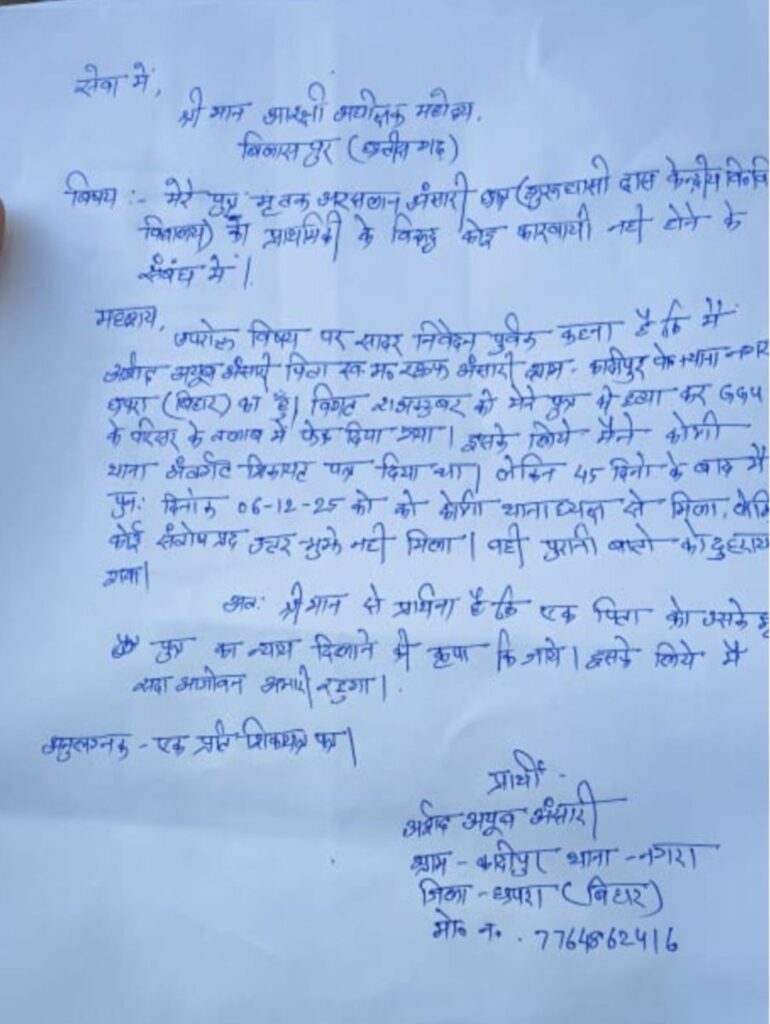 सेवा में,
श्री मान आरक्षी अधीक्षक महोदय,
बिलासपुर (छत्तीसगढ़)
विषय :- मेरे पुत्र मृतक अरसलान अंसारी छात्र (गुरू घासी दास केन्द्रीय विश्ववि
विद्यालय) का प्राथमिकी के विरुद्ध कोई कारवायी नही होने के
संबंध में।
महाशय,
उपरोक्त विषय पर सादर निवेदन पुर्वक कहना है कि मैं
अर्शाद अयूब अंसारी पिता स्व मह अंसारी ग्राम - कादीपुर थाना - नगरा
छपरा (बिहार) का हूँ। विगत 21 अक्टुबर को मेरे पुत्र की हत्या कर GGU
के परिसर के तलाब में फेक दिया गया। इसके लिये मैंने कोनी
थाना अंतर्गत शिकायत पत्र दिया था। लेकिन 45 दिनो के बाद मैं
पुन: दिनांक 06-12-25 को को कोनी थानाध्यक्ष से मिला, लेकि
कोई संतोष प्रद उत्तर मुझे नही मिला। वही पुरानी बातो को दुहराया
गया।
अत: श्रीमान से प्रार्थना है कि एक पिता को उसके मृ
पुत्र का न्याय दिलाने की कृपा कि जाये। इसके लिये मैं
सदा आजीवन अभारी रहुगा।
अनुलग्नक - एक प्रति शिकायत पत्र।
प्रार्थी -
अर्शाद अयूब अंसारी
ग्राम - कादीपुर थाना - नगरा
जिला - छपरा (बिहार)
मो० न० . 7764862416